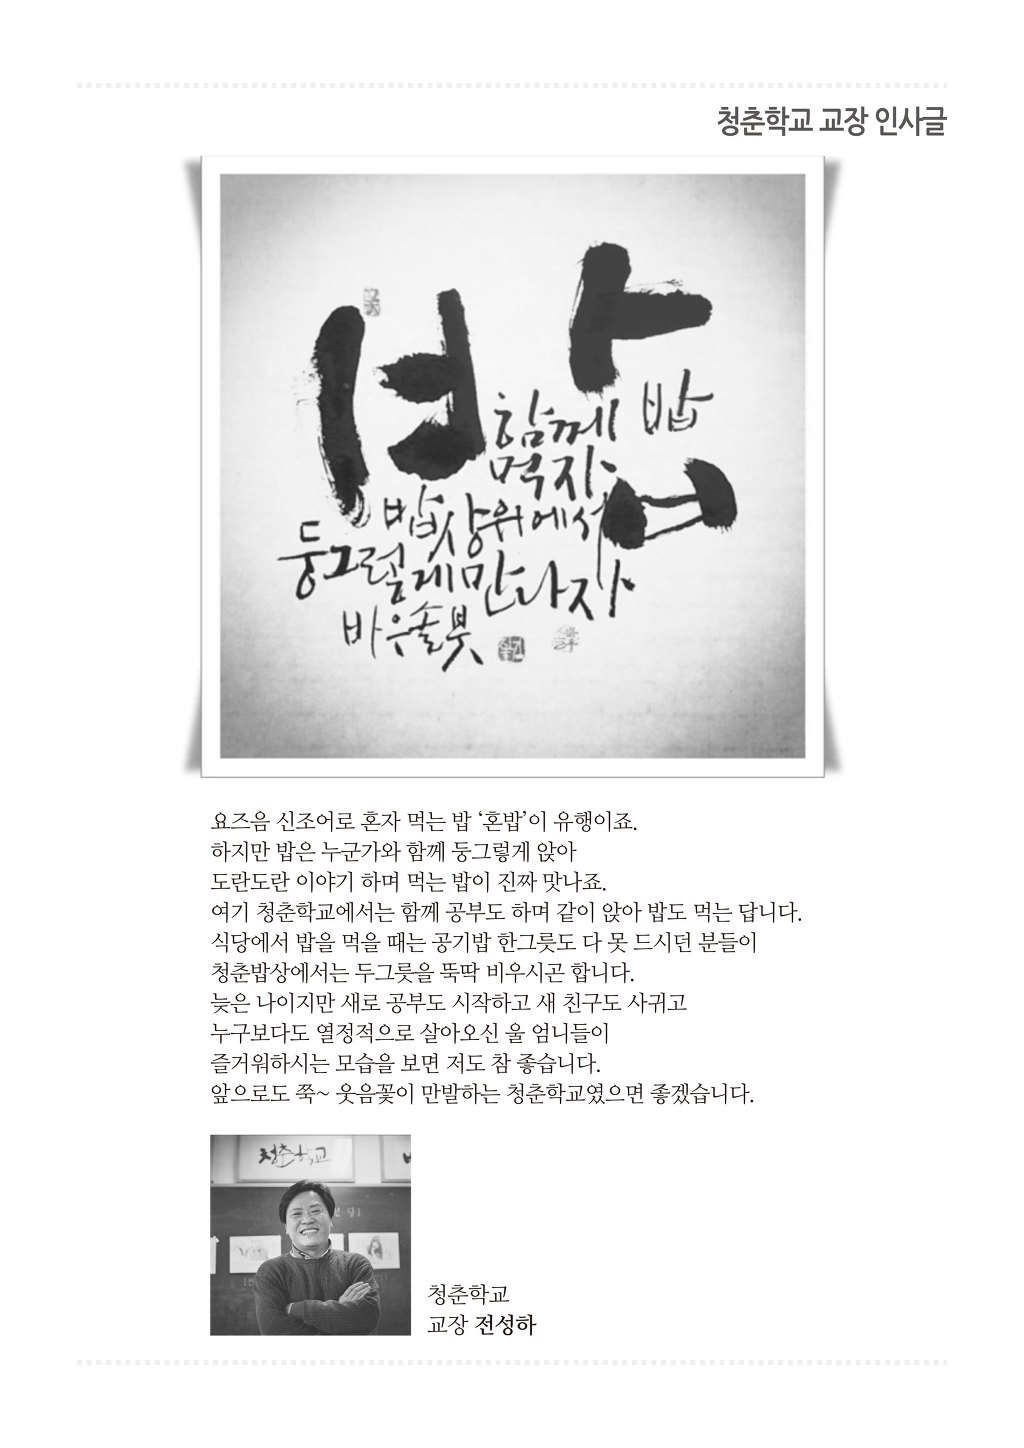 청춘학교 교장 인사글
밥
함께
먹자
밥상위에서
둥그렇게 만나자
바우솔 붓
요즈음 신조어로 혼자 먹는 밥 ‘혼밥’이 유행이죠.
하지만 밥은 누군가와 함께 둥그렇게 앉아
도란도란 이야기 하며 먹는 밥이 진짜 맛나죠.
여기 청춘학교에서는 함께 공부도 하며 같이 앉아 밥도 먹는 답니다.
식당에서 밥을 먹을 때는 공기밥 한그릇도 다 못 드시던 분들이
청춘밥상에서는 두그릇을 뚝딱 비우시곤 합니다.
늦은 나이지만 새로 공부도 시작하고 새 친구도 사귀고
누구보다도 열정적으로 살아오신 울 엄니들이
즐거워하시는 모습을 보면 저도 참 좋습니다.
앞으로도 쭉~ 웃음꽃이 만발하는 청춘학교였으면 좋겠습니다.
청춘학교
청춘학교
교장 전성하